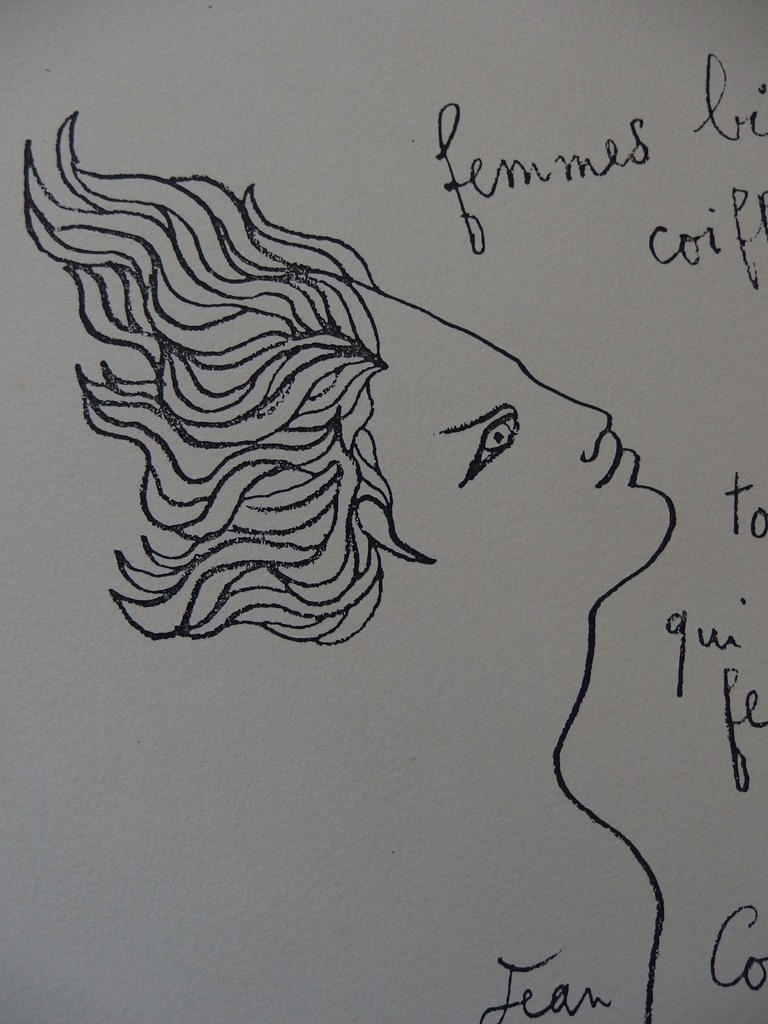 femmes bi
coiff
to
qui
fe
Jean Co